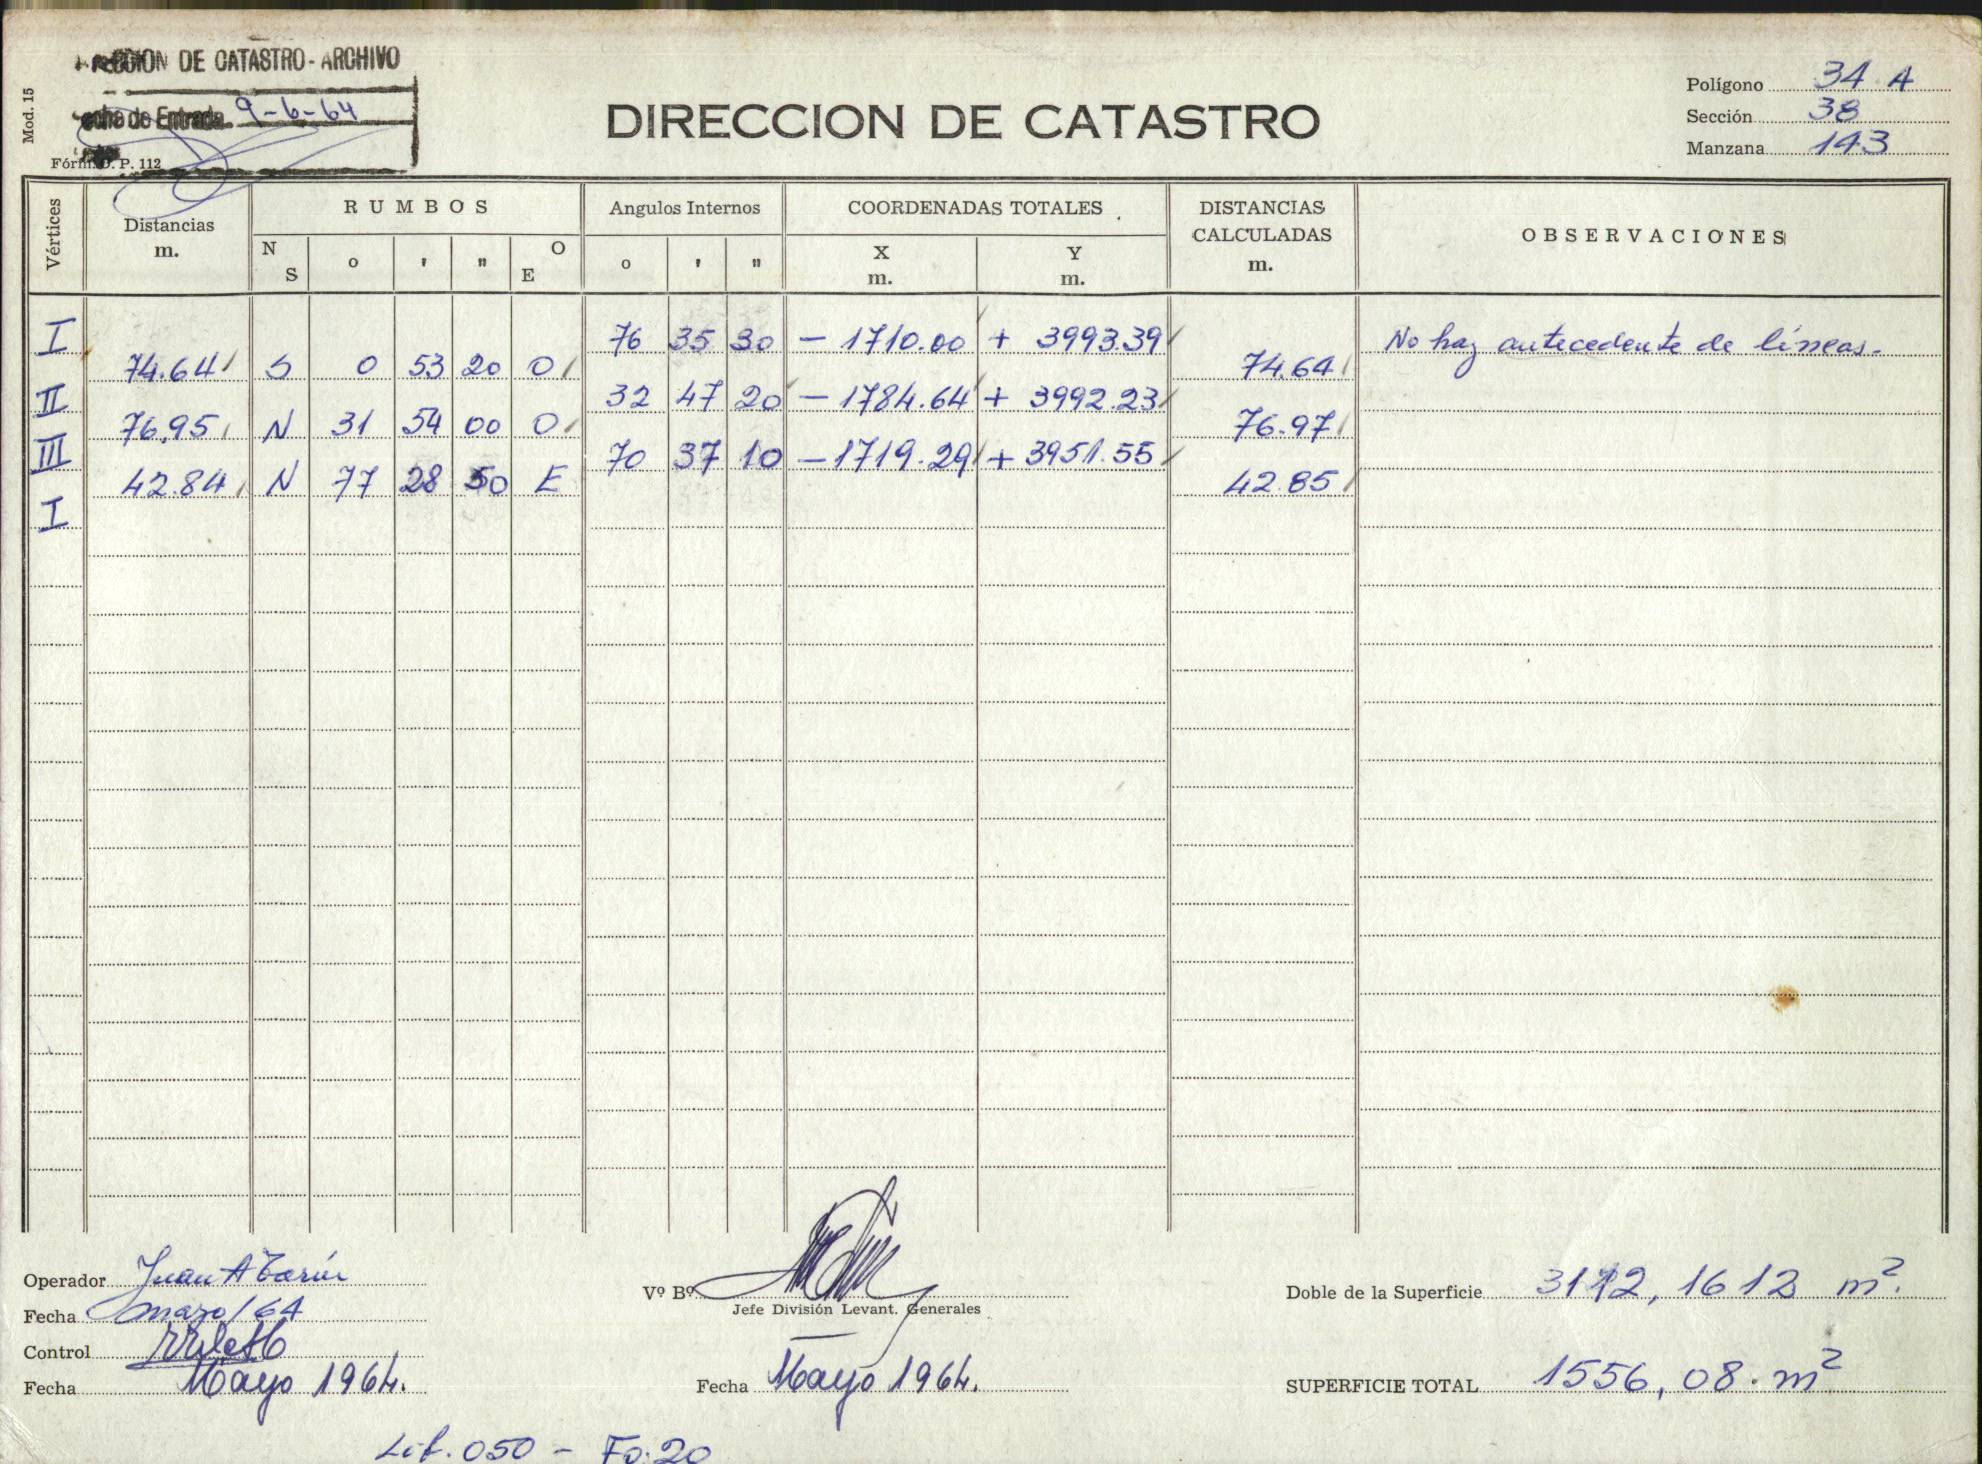 CCION DE CATASTRO - ARCHIVO
echa de Entrada 9-6-64
Mod. 15
Fórm. O. P. 112
DIRECCION DE CATASTRO
Polígono 34 A
Sección 38
Manzana 143
Vértices Distancias m. RUMBOS N S o ' " O E Angulos Internos o ' " COORDENADAS TOTALES X m. Y m. DISTANCIAS CALCULADAS m. OBSERVACIONES
I 76 35 30 - 1710.00 + 3993.39 No hay antecedente de líneas.
74.64 S 0 53 20 O 74.64
II 32 47 20 - 1784.64 + 3992.23
76.95 N 31 54 00 O 76.97
III 70 37 10 - 1719.29 + 3951.55
42.84 N 77 28 50 E 42.85
I
Operador Juan A
Fecha marzo/64
Control
Fecha Mayo 1964.
Vº Bº
Jefe División Levant. Generales
Fecha Mayo 1964.
Doble de la Superficie 3112,1612 m².
SUPERFICIE TOTAL 1556,08. m²
Lib. 050 - Fo. 20